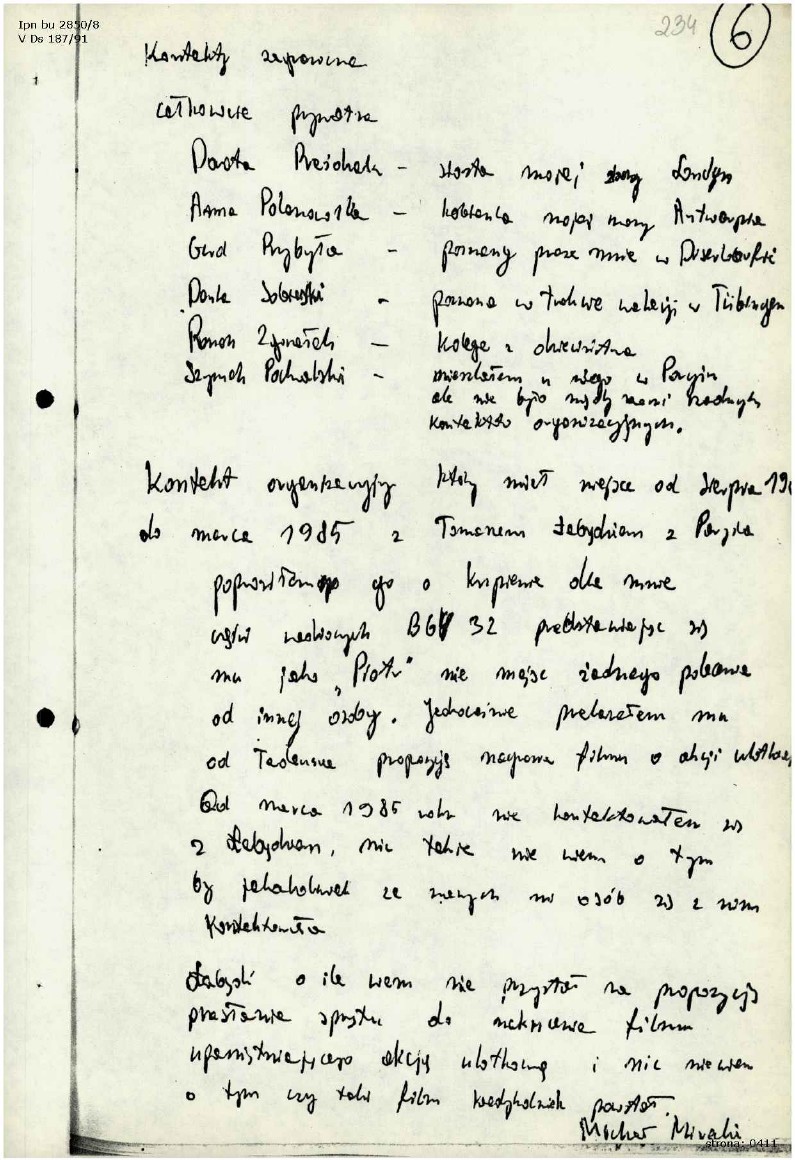 Ipn bu 2850/8
V Ds 187/91
234
6
Kontakty
całkowicie prywatne
Danta – siostra mojej żony Londyn
Anna Polanowska – koleżanka mojej żony Antwerpia
Gerd Przybyła – poznany przeze mnie w
Danta – poznana w trakcie wakacji w Tübingen
Roman – kolega z dzieciństwa
Pochalski – mieszkałem u niego w Paryżu
ale nie było między nami żadnych
kontaktów organizacyjnych.
Kontakt organizacyjny który miał miejsce od sierpnia 19
do marca 1985 z Tomanem Łabędziem z Paryża
poprosiłem go o kupienie dla mnie
części 32 przedstawiając się
mu jako „Piotr" nie mając żadnego polecenia
od innej osoby. Jednocześnie przekazałem mu
od Tadeusza propozycję filmu o akcji
Od marca 1985 roku nie kontaktowałem się
z Łabędziem, nic także nie wiem o tym
by jakakolwiek ze znanych mi osób się z nim
kontaktowała
Łabędź o ile wiem nie przystał na propozycję
przesłania sprzętu do nakręcenia filmu
upamiętniającego akcję ulotkową i nic nie wiem
o tym czy taki film kiedykolwiek powstał.
strona: 0411